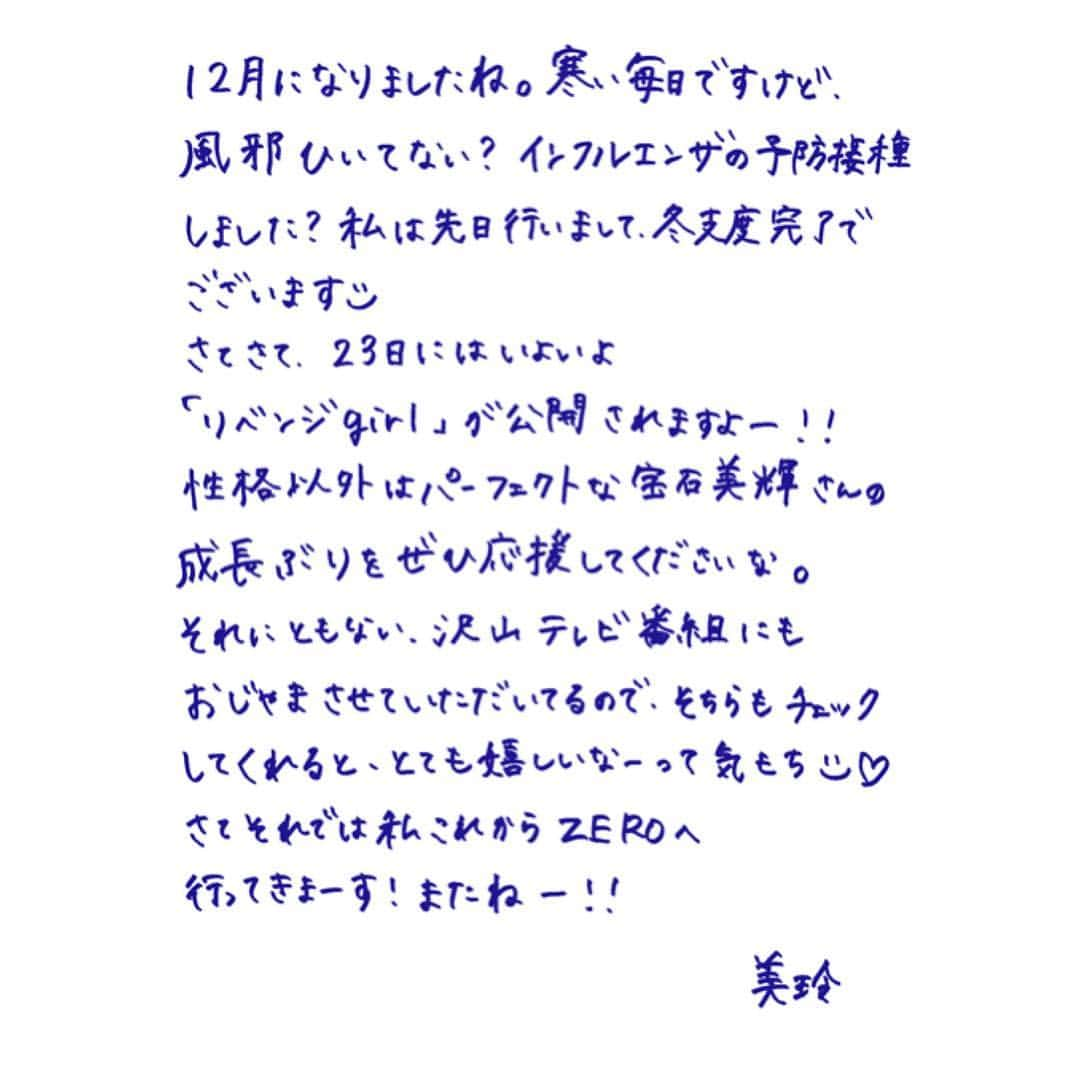 12月になりましたね。寒い毎日ですけど、
風邪ひいてない？インフルエンザの予防接種
しました？私は先日行いまして、冬支度完了で
ございます
さてさて、23日にはいよいよ
「リベンジgirl」が公開されますよー！！
性格以外はパーフェクトな宝石美輝さんの
成長ぶりをぜひ応援してくださいな。
それにともない、沢山テレビ番組にも
おじゃまさせていただいてるので、そちらもチェック
してくれると、とても嬉しいなーって気もち♡
さてそれでは私これからZEROへ
行ってきまーす！またねー！！
美玲